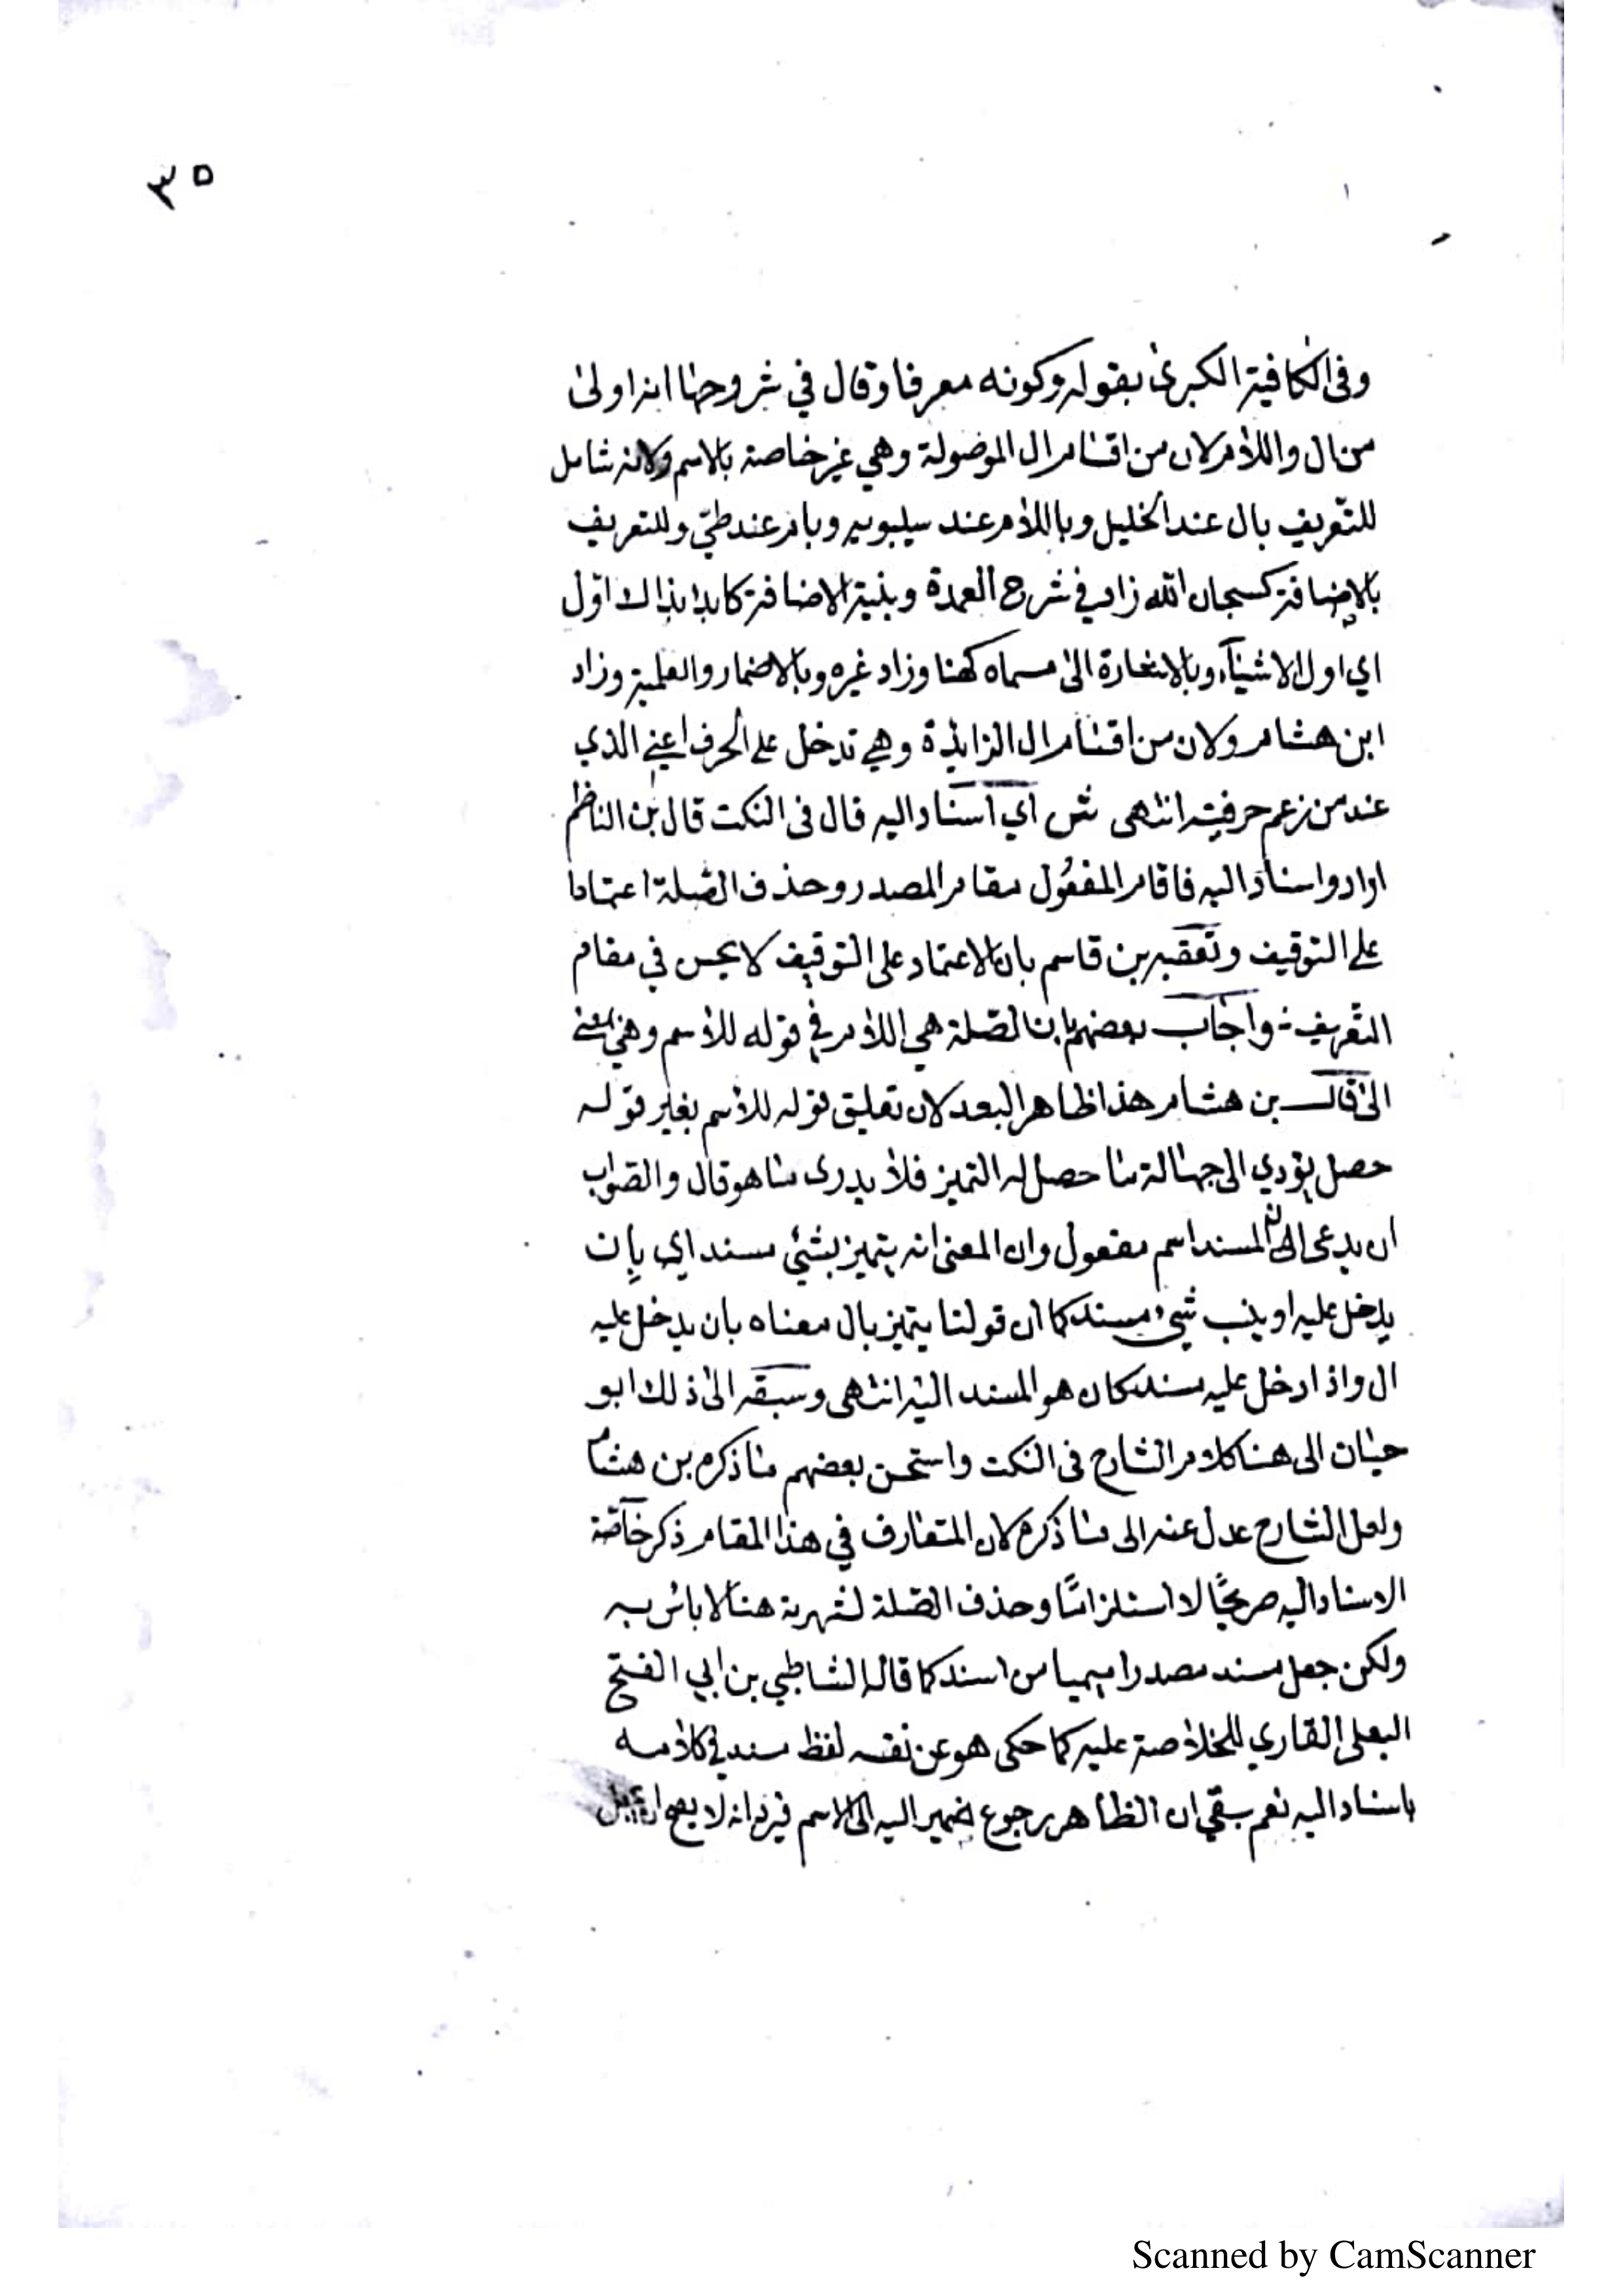 ٣٥
وفى الكافية الكبرى بقوله وكونه معرفا وقال في شروحها انه اولى
من ال واللام لان من اقسام ال الموصولة وهي غير خاصة بالاسم ولانه شامل
للتعريف بال عند الخليل وباللام عند سيبويه وبام عند طيّ وللتعريف
بالاضافة كسبحان الله زاد في شرح العمدة وبنية الاضافة كابدا بذلك اوّل
اي اول الاشياء وبالاشارة الى مسماه كهنا وزاد غيره وبالاضمار والعلمية وزاد
ابن هشام ولان من اقسام ال الزايدة وهي تدخل على الحرف اعني الذي
عند من زعم حرفيته انتهى ش اي اسناد اليه قال فى النكت قال بن الناظم
اراد واسناد اليه فاقام المفعول مقام المصدر وحذف الصلة اعتمادا
على التوقيف وتعقبه بن قاسم بان الاعتماد على التوقيف لا يحسن في مقام
التعريف واجاب بعضهم بان الصلة هي اللام في قوله للاسم وهي بمعنى
الى قال بن هشام هذا ظاهر البعد لان تعليق قوله للاسم بغير قوله
حصل يؤدي الى جهالة ما حصل له التميز فلا يدرى ما هو قال والصواب
ان يدعى ان المسند اسم مفعول وان المعنى انه يتميز بشئ مسند اي بان
يدخل عليه او ينسب شيء مسند كما ان قولنا يتميز بال معناه بان يدخل عليه
ال واذا دخل عليه مسند كان هو المسند اليه انتهى وسبقه الى ذلك ابو
حيان الى هنا كلام الشارح فى النكت واستحسن بعضهم ما ذكره بن هشام
ولعل الشارح عدل عنه الى ما ذكره لان المتعارف في هذا المقام ذكر خاصة
الاسناد اليه صريحًا لا استلزامًا وحذف الصلة لشهرته هنا لا باس به
ولكن جعل مسند مصدرا ميميا من اسند كما قاله الشاطبي بن ابي الفتح
البعلى القاري للخلاصة عليه كما حكى هو عن نفسه لفظ مسند في كلامه
باسناد اليه نعم بقي ان الظاهر رجوع ضمير اليه الى الاسم فيرد انه لا يصح
Scanned by CamScanner